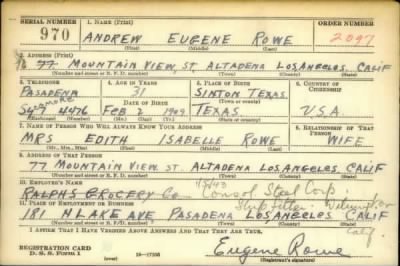 SERIAL NUMBER 1. NAME (Print) ORDER NUMBER
970 ANDREW EUGENE ROWE 2097
(First) (Middle) (Last)
2. ADDRESS (Print)
77 MOUNTAIN VIEW, ST, ALTADENA LOS ANGELES, CALIF
(Number and street or R. F. D. number) (Town) (County) (State)
3. TELEPHONE 4. AGE IN YEARS 5. PLACE OF BIRTH 6. COUNTRY OF CITIZENSHIP
PASADENA 31 SINTON TEXAS.
DATE OF BIRTH (Town or county)
4476 FEB 2 1909 TEXAS U.S.A
(Exchange) (Number) (Mo.) (Day) (Yr.) (State or country)
7. NAME OF PERSON WHO WILL ALWAYS KNOW YOUR ADDRESS 8. RELATIONSHIP OF THAT PERSON
MRS EDITH ISABELLE ROWE WIFE
(Mr., Mrs., Miss) (First) (Middle) (Last)
9. ADDRESS OF THAT PERSON
77 MOUNTAIN VIEW. ST ALTADENA LOS ANGELES CALIF
(Number and street or R. F. D. number) (Town) (County) (State)
10. EMPLOYER'S NAME
RALPHS GROCERY CO Consol Steel Corp
11. PLACE OF EMPLOYMENT OR BUSINESS Ship fitter. Wilmington
181 N LAKE AVE PASADENA LOS ANGELES CALIF
(Number and street or R. F. D. number) (Town) (County) (State) Calif.
I AFFIRM THAT I HAVE VERIFIED ABOVE ANSWERS AND THAT THEY ARE TRUE.
REGISTRATION CARD
D. S. S. Form 1 (over) 16—17105 Eugene Rowe
(Registrant's signature)